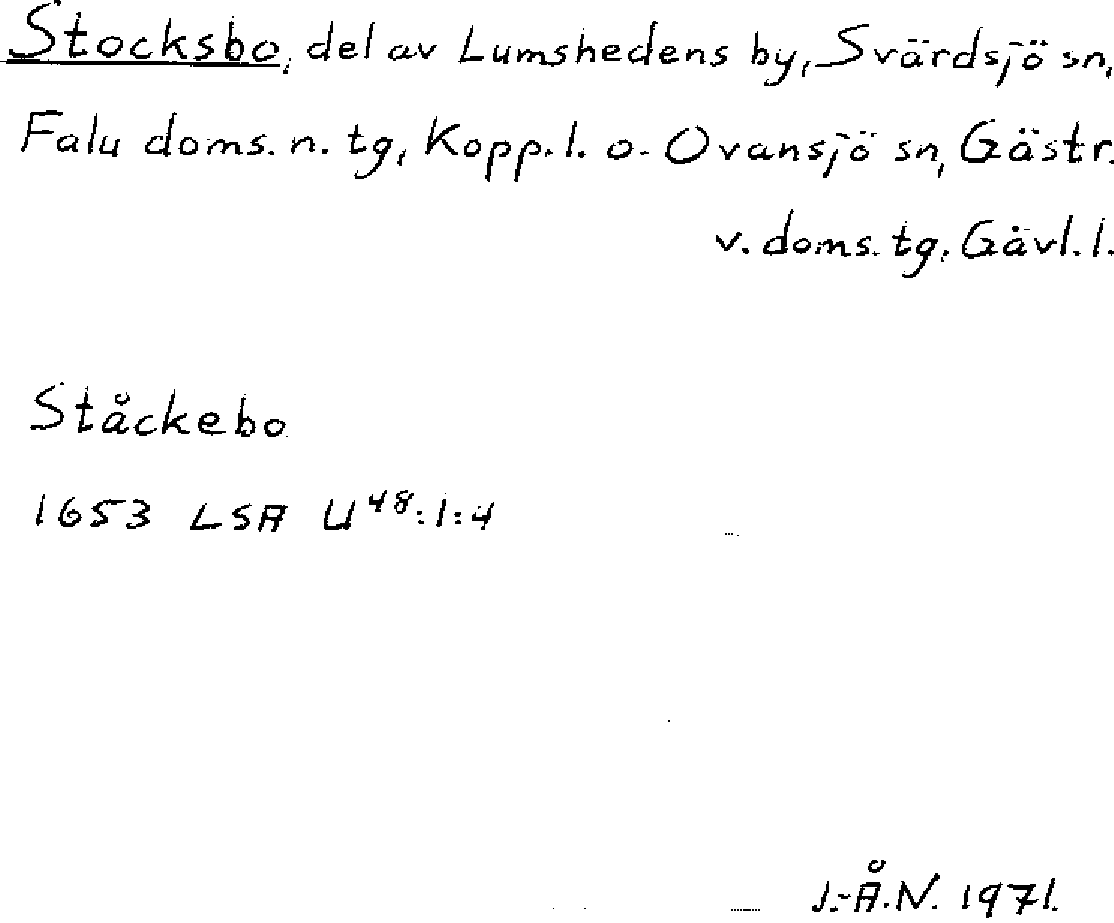 Stocksbo, del av Lumshedens by, Svärdsjö sn,
Falu doms. n. tg, Kopp. l. o. Ovansjö sn, Gästr.
v. doms. tg, Gävl. l.
Ståckebo
1653 LSA U⁴⁸:1:4
J.-Å.N. 1971.